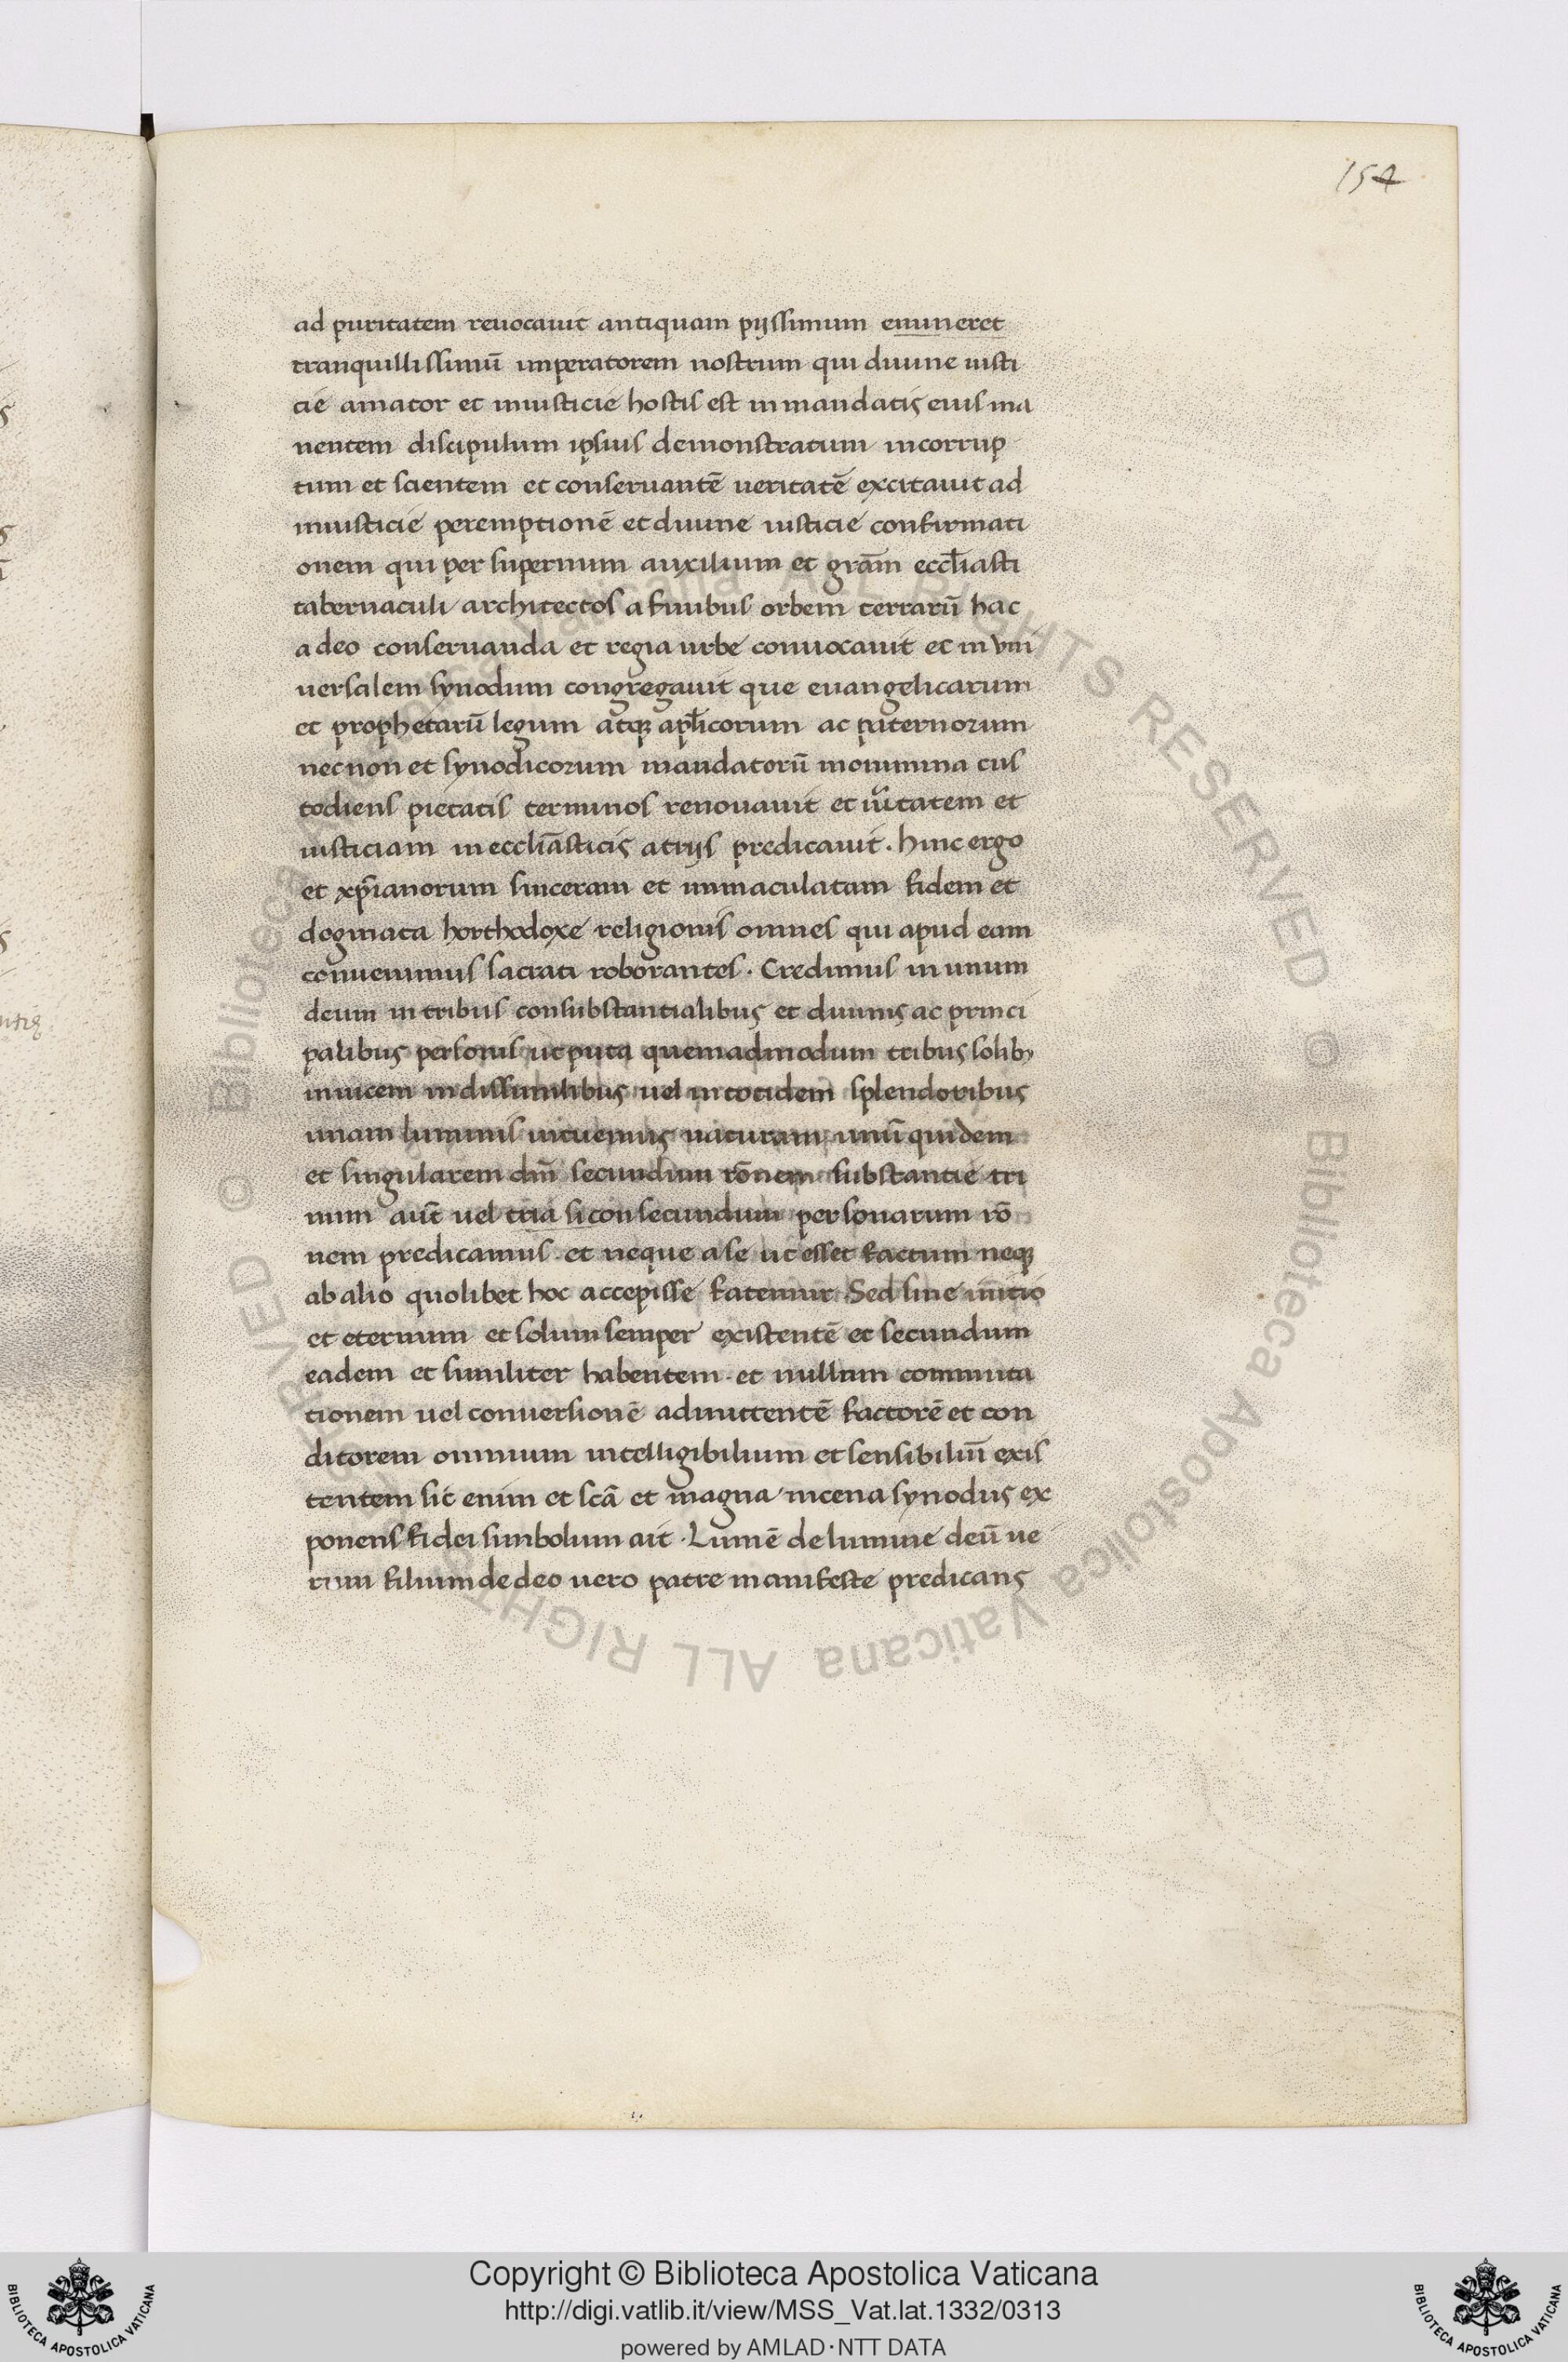 154
ad puritatem reuocauit antiquam pijssimum enuneret
tranquillissimū imperatorem nostrum qui diuine iusti
cie amator et iniusticie hostis est in mandatis eius ma
nentem discipulum ipsius demonstratum incorrup
tum et scientem et conseruantē ueritatē excitauit ad
iniusticie peremptionē et diuine iusticie confirmati
onem qui per supernum auxilium et grām eccl̄iasti
tabernaculi architectos a finibus orbem terrarū hac
a deo conseruanda et regia urbe conuocauit et in vni
uersalem synodum congregauit que euangelicarum
et prophetarū legum atqꝫ apl̄icorum ac paternorum
nec non et synodicorum mandatorū monimina cus
todiens pietatis terminos renouauit et iu̅tatem et
iusticiam in eccliāsticis atrijs predicauit. hinc ergo
et xp̄ianorum sinceram et immaculatam fidem et
dogmata horthodoxe religionis omnes qui apud eam
conuenimus sacrati roborantes. Credimus in unum
deum in tribus consubstantialibus et diuinis ac princi
palibus personis ut puta quemadmodum tribus solibꝫ
inuicem indissimilibus uel in totidem splendoribus
unam luminis intuemus naturam unū quidem
et singularem dn̄m secundum rōnem substantie tri
num aūt uel tria sicon secundum personarum rō
nem predicamus. et neque a se ut esset factum neqꝫ
ab alio quolibet hoc accepisse fatemur. Sed sine initio
et eternum et solum semper existentē et secundum
eadem et similiter habentem. et nullam commuta
tionem uel conuersionē admittentē factorē et con
ditorem omnium intelligibilium et sensibiliū exis
tentem sic enim et scā et magna nicena synodus ex
ponens fidei simbolum ait. Lumē de lumine deū ue
rum filium de deo uero patre manifeste predicans
Biblioteca Apostolica Vaticana ALL RIGHTS RESERVED ©
Copyright © Biblioteca Apostolica Vaticana
http://digi.vatlib.it/view/MSS_Vat.lat.1332/0313
powered by AMLAD·NTT DATA
BIBLIOTECA APOSTOLICA VATICANA
BIBLIOTECA APOSTOLICA VATICANA